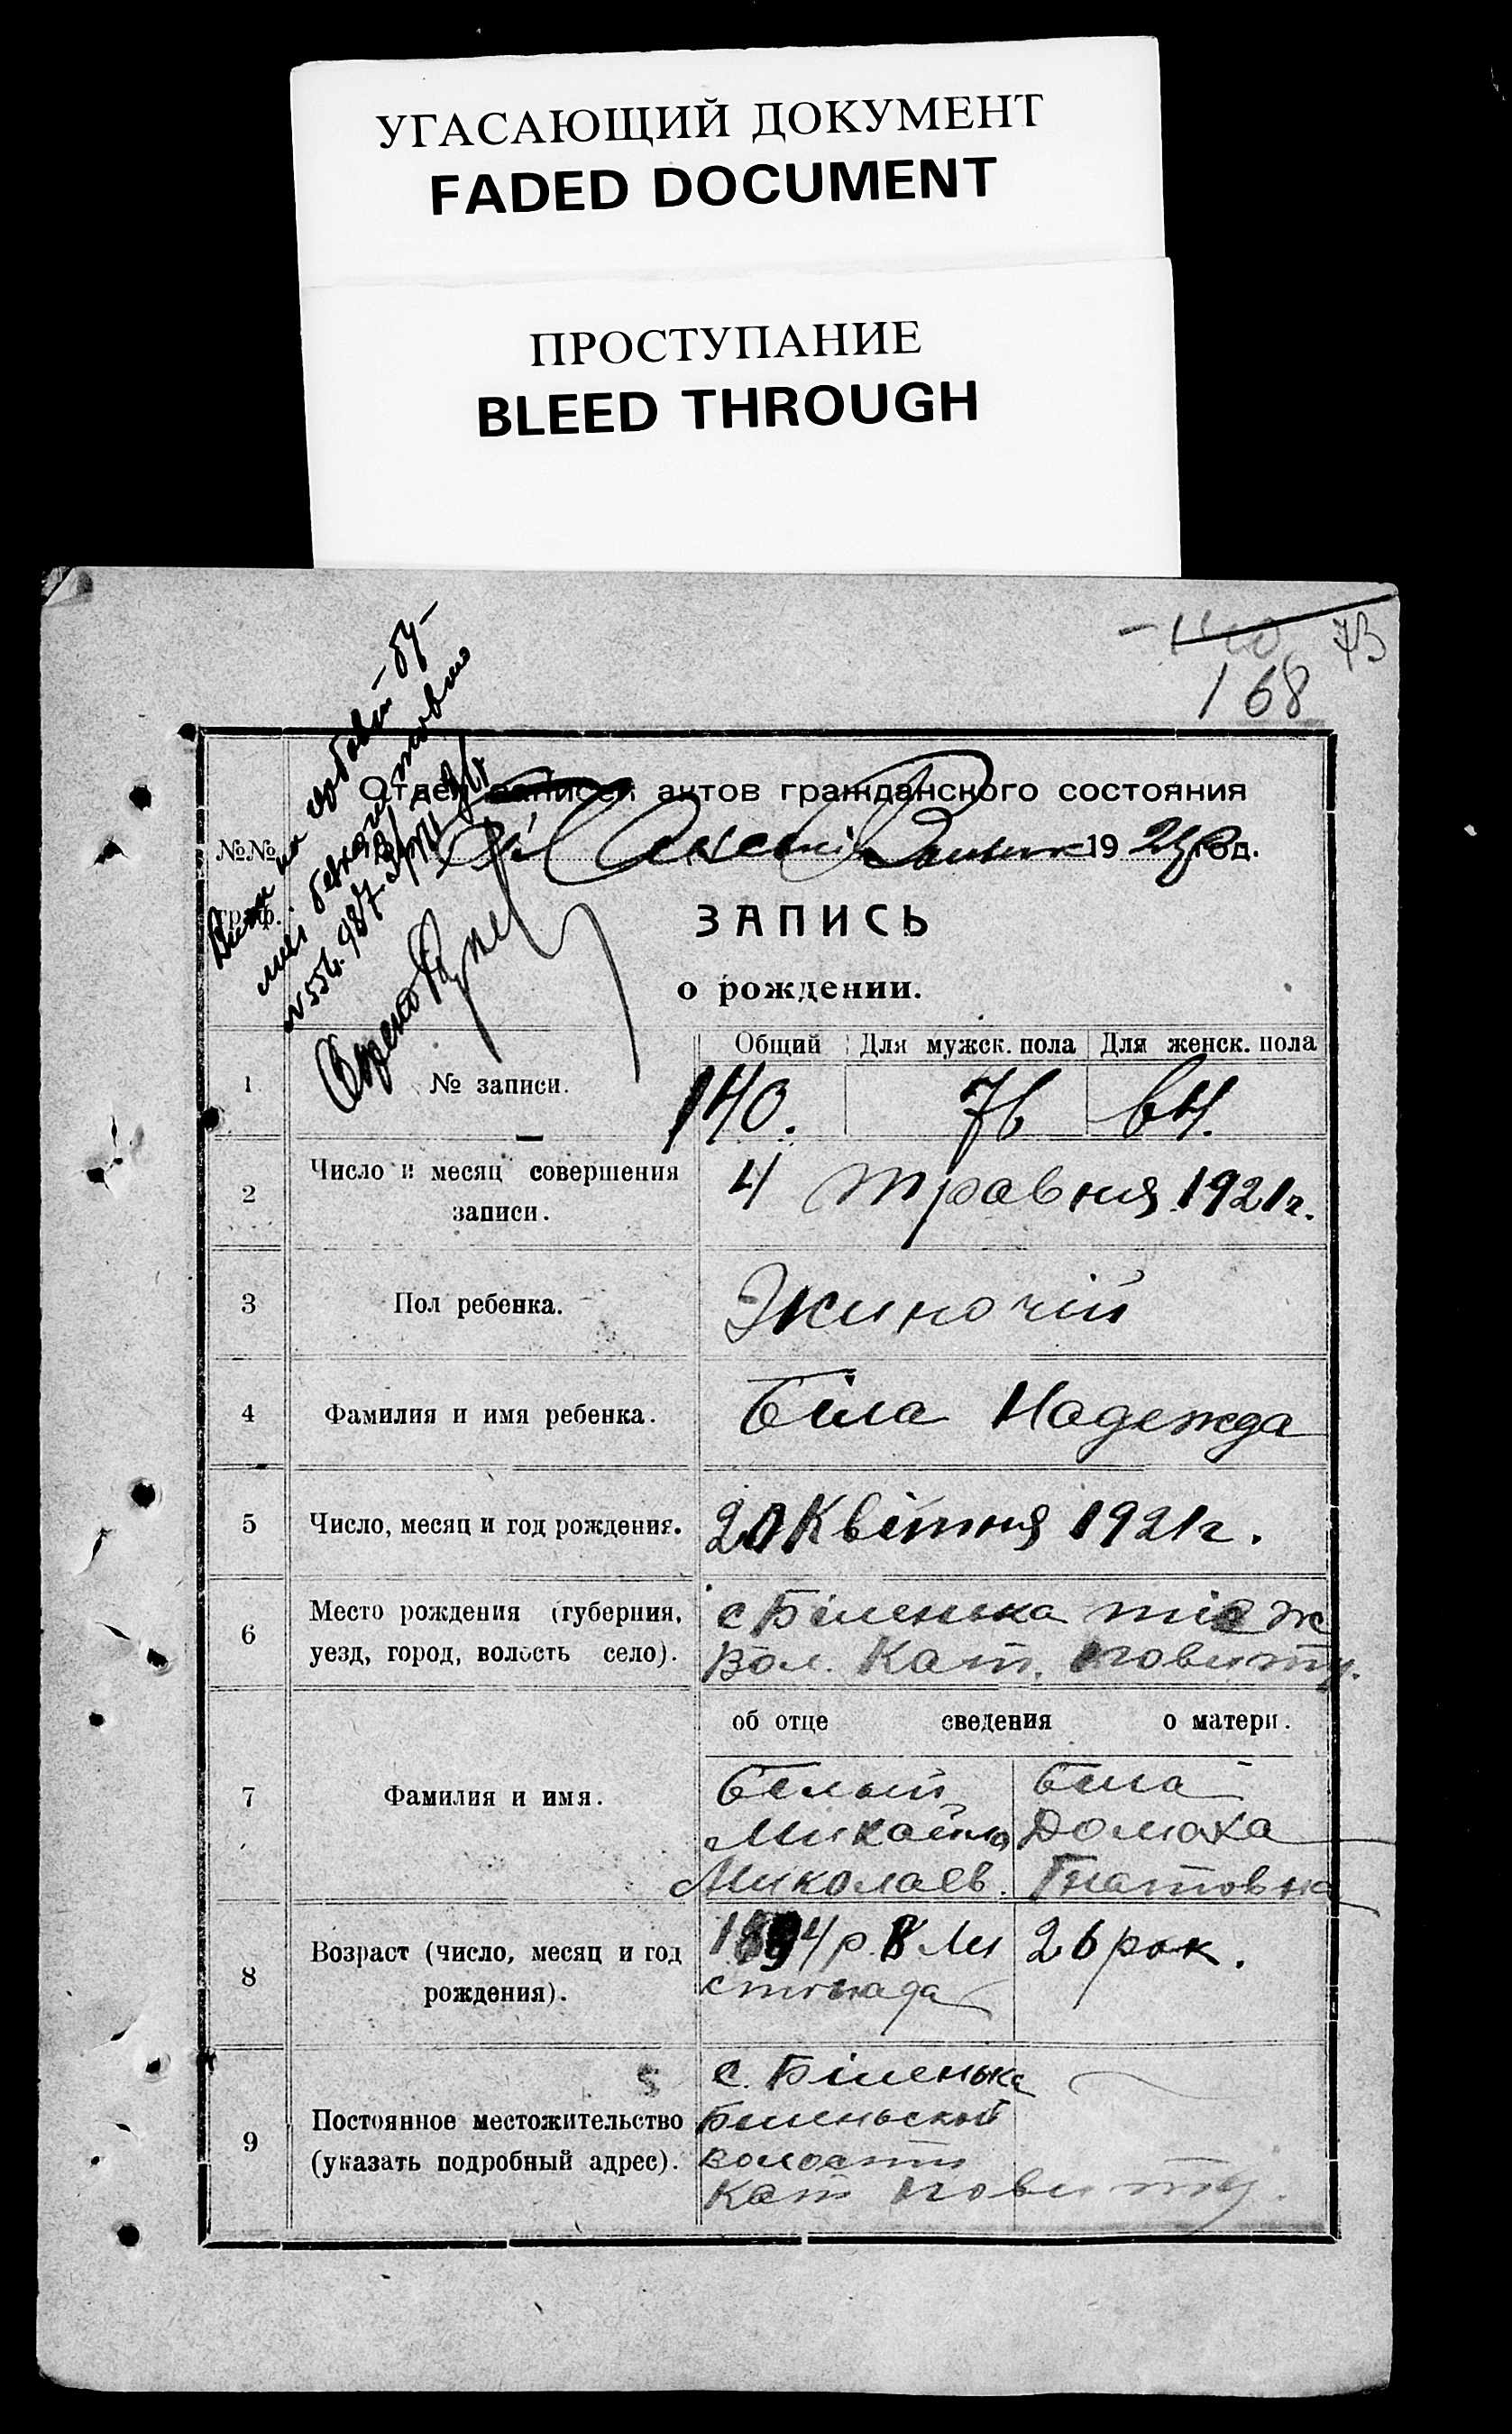 УГАСАЮЩИЙ ДОКУМЕНТ
FADED DOCUMENT
ПРОСТУПАНИЕ
BLEED THROUGH
73
168
Отдел записей актов гражданского состояния
№№ 19 год.
граф.
ЗАПИСЬ
о рождении.
Общий Для мужск. пола Для женск. пола
1 № записи. 140. 76 64.
2 Число и месяц совершения записи. 4 травня 1921г.
3 Пол ребенка. Жиночій
4 Фамилия и имя ребенка. Біла Надежда
5 Число, месяц и год рождения. Квітня 1921г.
6 Место рождения (губерния, с Біленька тіеж
уезд, город, волость село). вол. Кат. повиту.
об отце сведения о матери.
Белый Біла
7 Фамилия и имя. Михайло Домаха
Миколаев. Гнатовна
8 Возраст (число, месяц и год 1894р. 8 Ли 26 рок.
рождения). стопада
с. Біленька
9 Постоянное местожительство Биленьской
(указать подробный адрес). волости
Кат повиту.